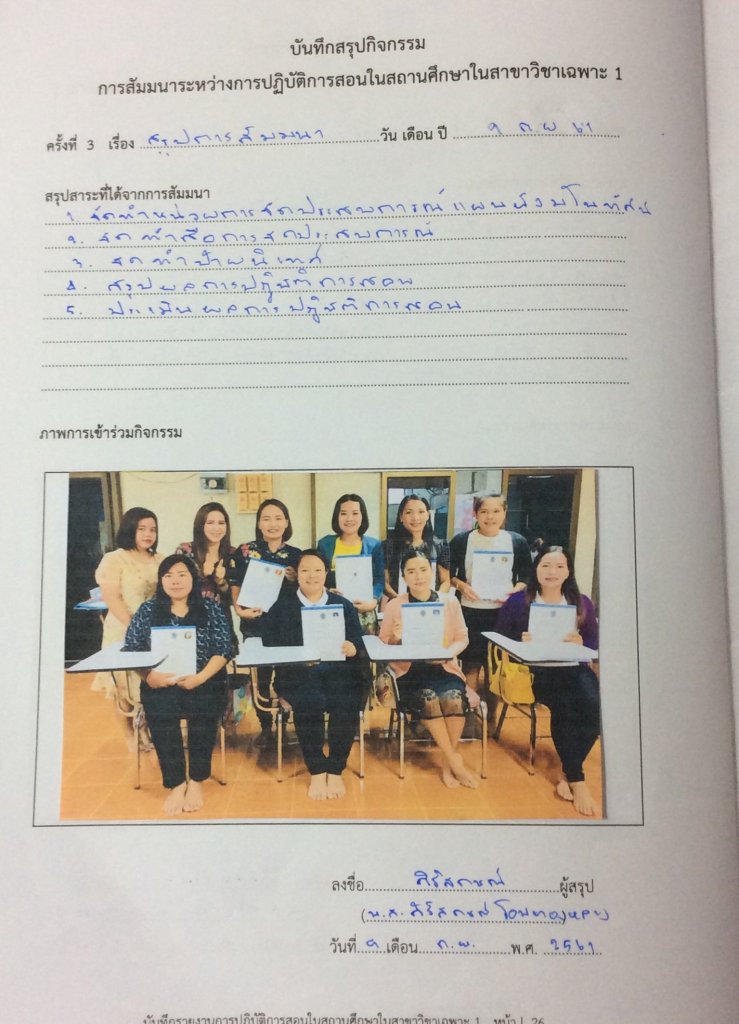 บันทึกสรุปกิจกรรม
การสัมมนาระหว่างการปฏิบัติการสอนในสถานศึกษาในสาขาวิชาเฉพาะ 1
ครั้งที่ 3 เรื่อง สรุปการสัมมนา วัน เดือน ปี ๑ ก.พ ๖๑
สรุปสาระที่ได้จากการสัมมนา
1. จัดทำหน่วยการจัดประสบการณ์ แผนผังมโนทัศน์
2. จัดทำสื่อการจัดประสบการณ์
3. จัดทำป้ายนิเทศ
4. สรุปผลการปฏิบัติการสอน
5. ประเมินผลการปฏิบัติการสอน
ภาพการเข้าร่วมกิจกรรม
ลงชื่อ ศิริลักษณ์ ผู้สรุป
(น.ส. ศิริลักษณ์
วันที่ ๑ เดือน ก.พ. พ.ศ. 2561
บันทึกรายงานการปฏิบัติการสอนในสถานศึกษาในสาขาวิชาเฉพาะ 1 หน้า | 26